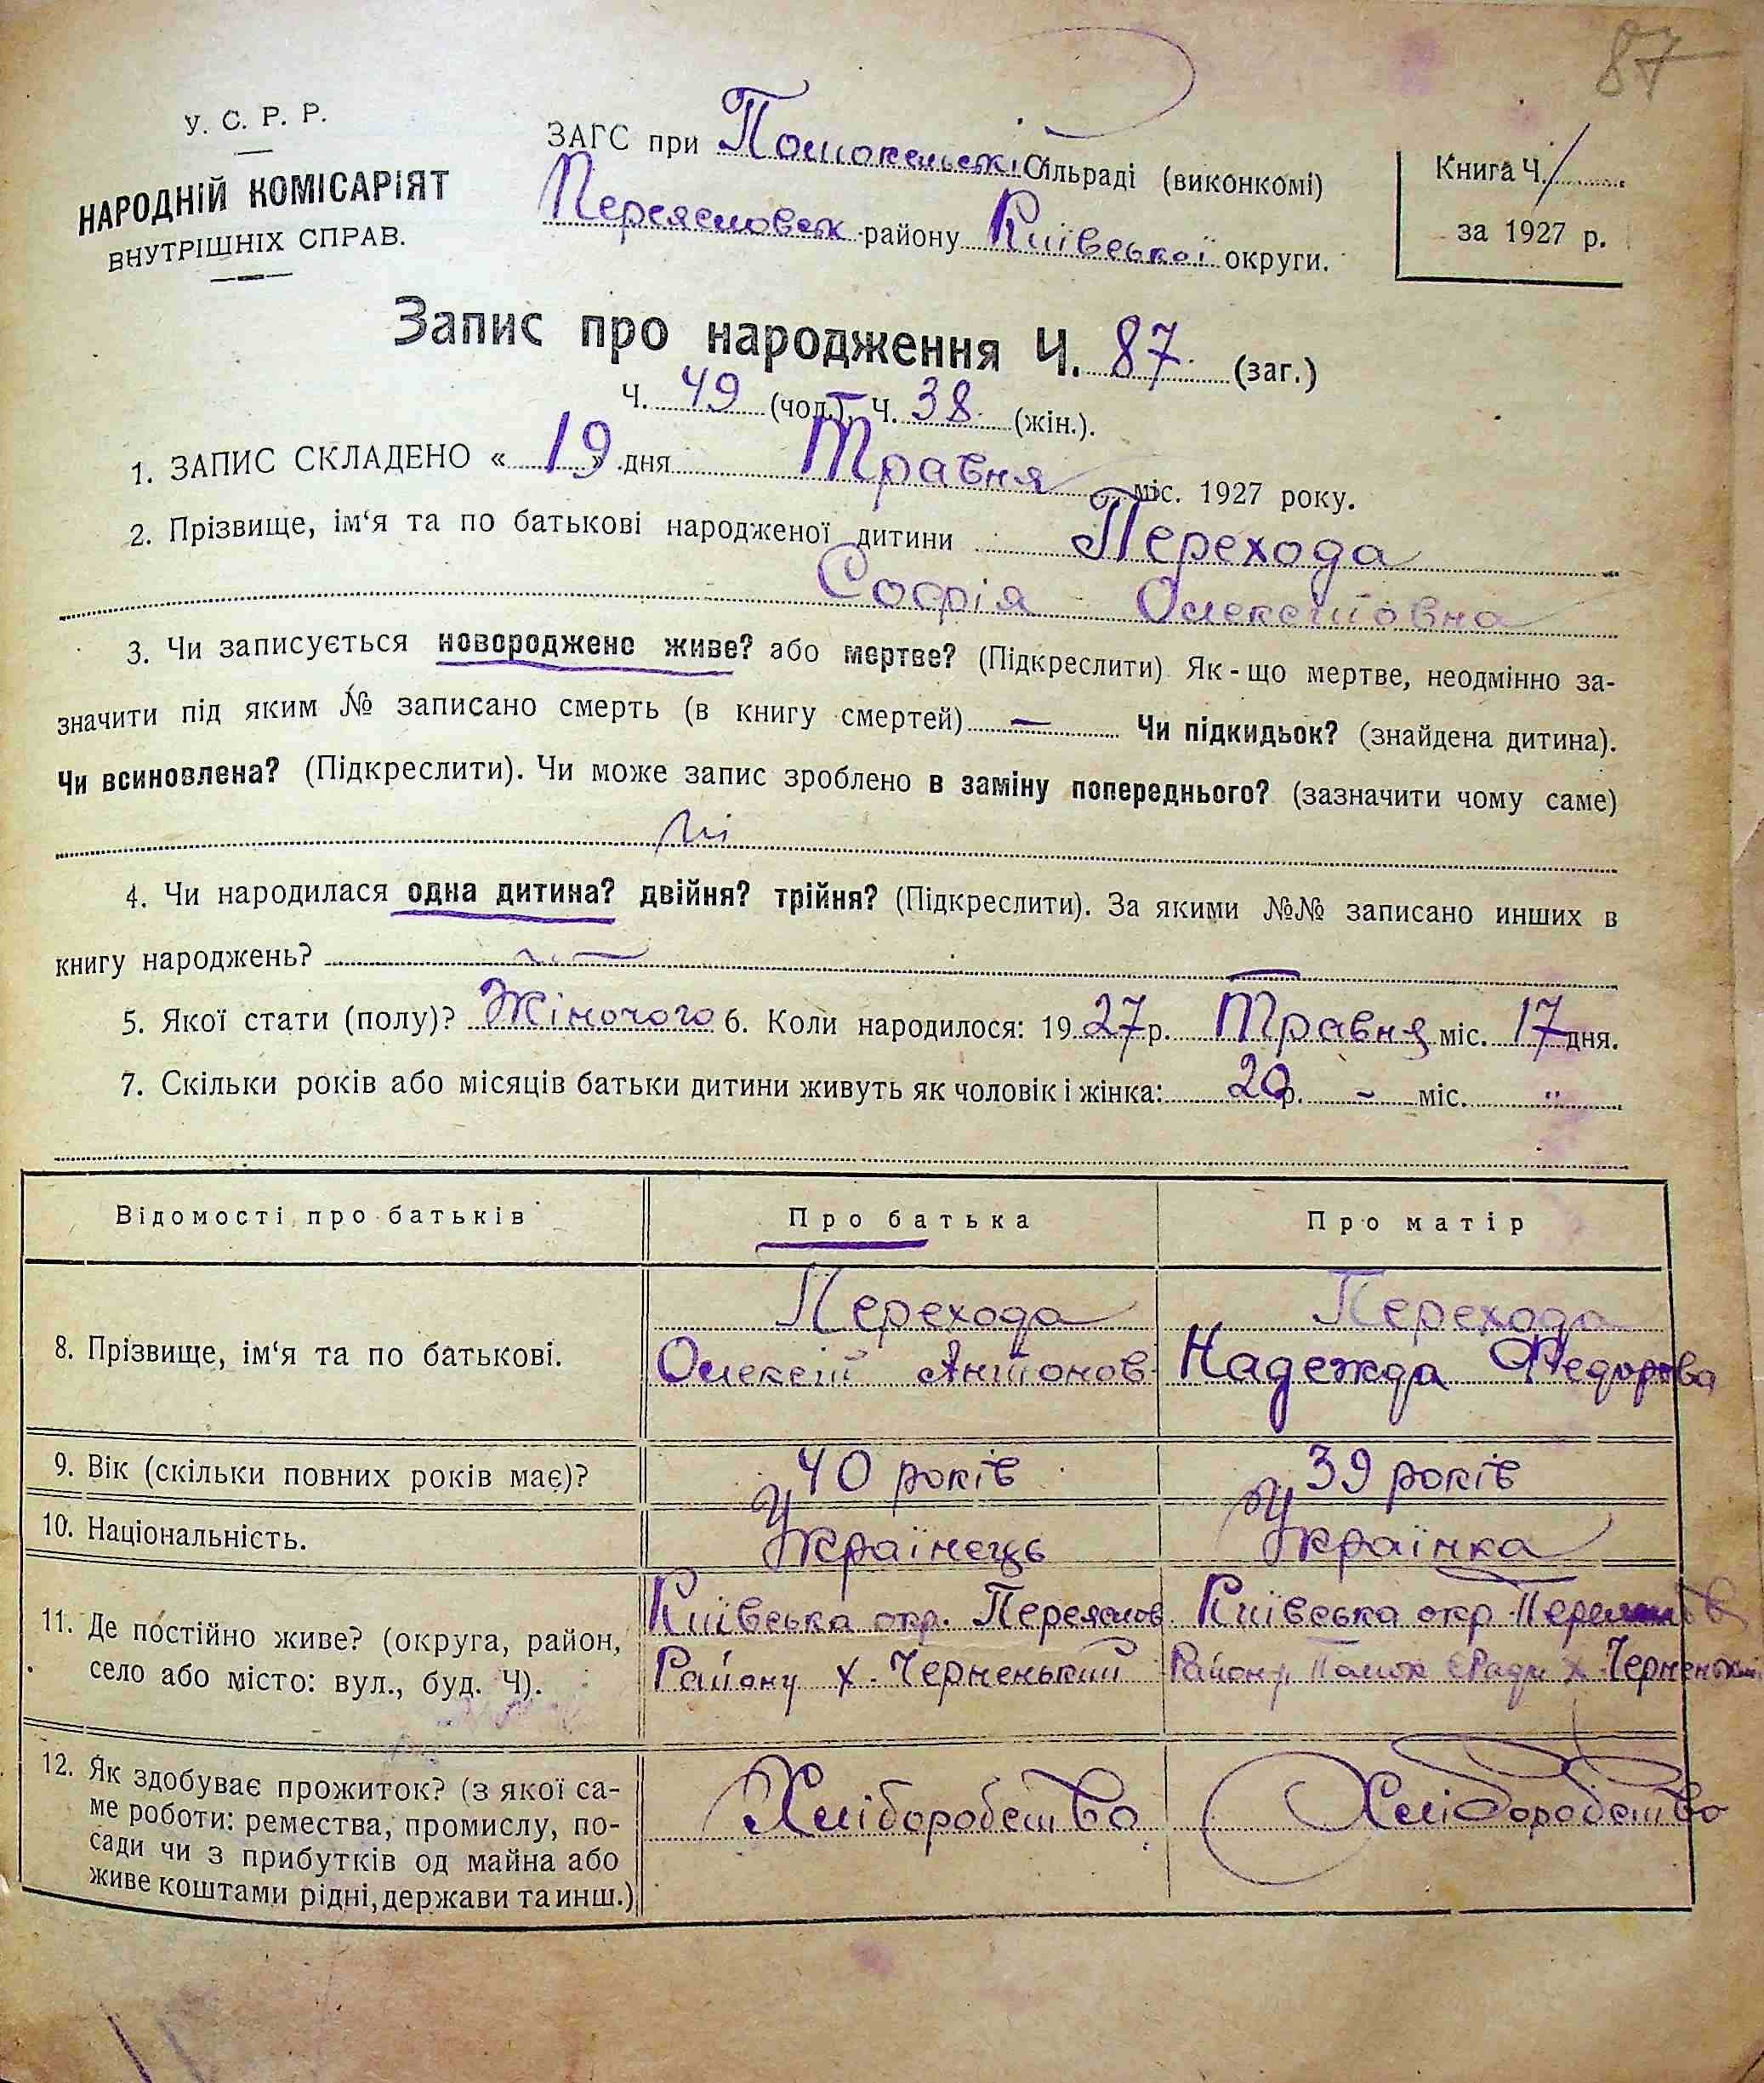 87
У. С. Р. Р.
НАРОДНІЙ КОМІСАРІЯТ
ВНУТРІШНІХ СПРАВ.
ЗАГС при Помокельській Сільраді (виконкомі)
Переяславськ району Київської округи.
Книга Ч.
за 1927 р.
Запис про народження Ч. 87 (заг.)
Ч. 49 (чол.), Ч. 38 (жін.).
1. ЗАПИС СКЛАДЕНО « 19 » дня Травня міс. 1927 року.
2. Прізвище, ім‘я та по батькові народженої дитини Перехода
Софія Олексіївна
3. Чи записується новороджене живе? або мертве? (Підкреслити) Як-що мертве, неодмінно за-
значити під яким № записано смерть (в книгу смертей) — Чи підкидьок? (знайдена дитина).
Чи всиновлена? (Підкреслити). Чи може запис зроблено в заміну попереднього? (зазначити чому саме)
Ні
4. Чи народилася одна дитина? двійня? трійня? (Підкреслити). За якими №№ записано инших в
книгу народжень?
5. Якої стати (полу)? Жіночого 6. Коли народилося: 1927 р. Травня міс. 17 дня.
7. Скільки років або місяців батьки дитини живуть як чоловік і жінка: 20 р. - міс. "
Відомості про батьків
Про батька
Про матір
8. Прізвище, ім‘я та по батькові.
Перехода
Олексій Антонов
Перехода
Надежда Федорова
9. Вік (скільки повних років має)?
40 років
39 років
10. Національність.
Українець
Українка
11. Де постійно живе? (округа, район,
село або місто: вул., буд. Ч).
Київська окр. Переяслов
Району х. Черненький
Київська окр. Переяслов
Району Помок СРади х. Черненький
12. Як здобуває прожиток? (з якої са-
ме роботи: ремества, промислу, по-
сади чи з прибутків од майна або
живе коштами рідні, держави та инш.)
Хліборобство
Хліборобство